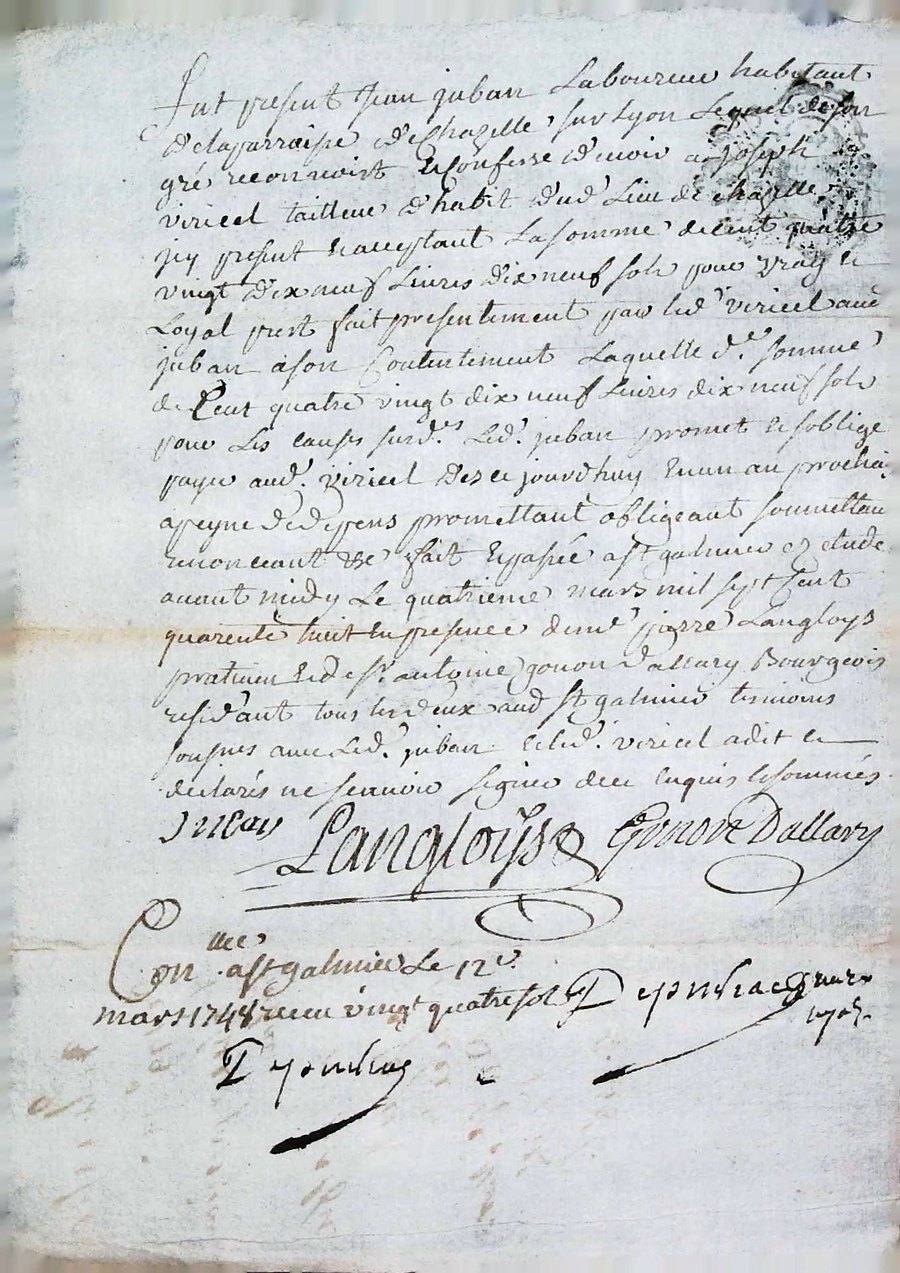 Fut present Jean juban Laboureur habitant
delaparroisse de Chazelle sur Lyon Lequel de son
gré reconnoist & Confesse devoir a Joseph
viricel tailleur d'habit dud. Lieu de Chazelle
jcy present & acceptant La somme de cent quatre
vingt dix neuf Livres dix neuf sols pour vray &
Loyal prest fait presentement par led. viricel aud
juban à son Contentement Laquelle d.e somme
de Cent quatre vingt dix neuf Livres dix neuf sols
pour Les causes surd.es Led. juban promet & soblige
payer aud. viricel des ce jourdhuy En un an prochain
apeyne de depens promettant obligeant soumettan
renonceant &c fait & passé a st galmier es etude
avant midy Le quatrieme mars mil sept Cent
quarente huit En presence de me pierre Langloys
praticien & de sr. antoine gonon dallary Bourgeois
residant tous les deux aud st galmier temoins
sousnes avec Led. juban & led. viricel a dit &
declarés ne scavoir signer de ce Enquis & sommés
Langloys Gonon Dallary
Con.llee a st galmier Le 12e.
mars 1748 receu vingt quatre sols